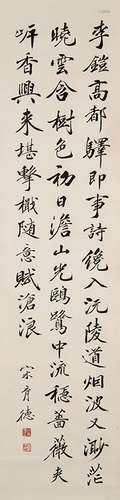 李鎧高都驛即事詩纔入沅陵道烟波又渺茫
曉雲含樹色初日澹山光鷗鷺中流穩薔薇夾
岸香興來堪擊楫隨意賦滄浪
宋育德